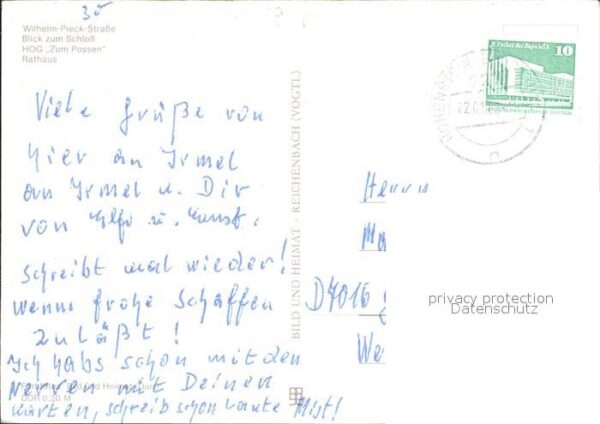 35
Wilhelm-Pieck-Straße
Blick zum Schloß
HOG „Zum Possen"
Rathaus
Viele Grüße von
hier an Irmel
an Irmel u. Dir
von Elfo u. Kunst.
schreibt mal wieder!
wenns frohe Schaffen
zuläßt!
Ich habs schon mit den
Nerven mit Deinen
Karten, schreib schon Mist!
DDR 0,20 M
BILD UND HEIMAT · REICHENBACH (VOGTL)
10
Herrn
Ma
D7016
We
privacy protection
Datenschutz